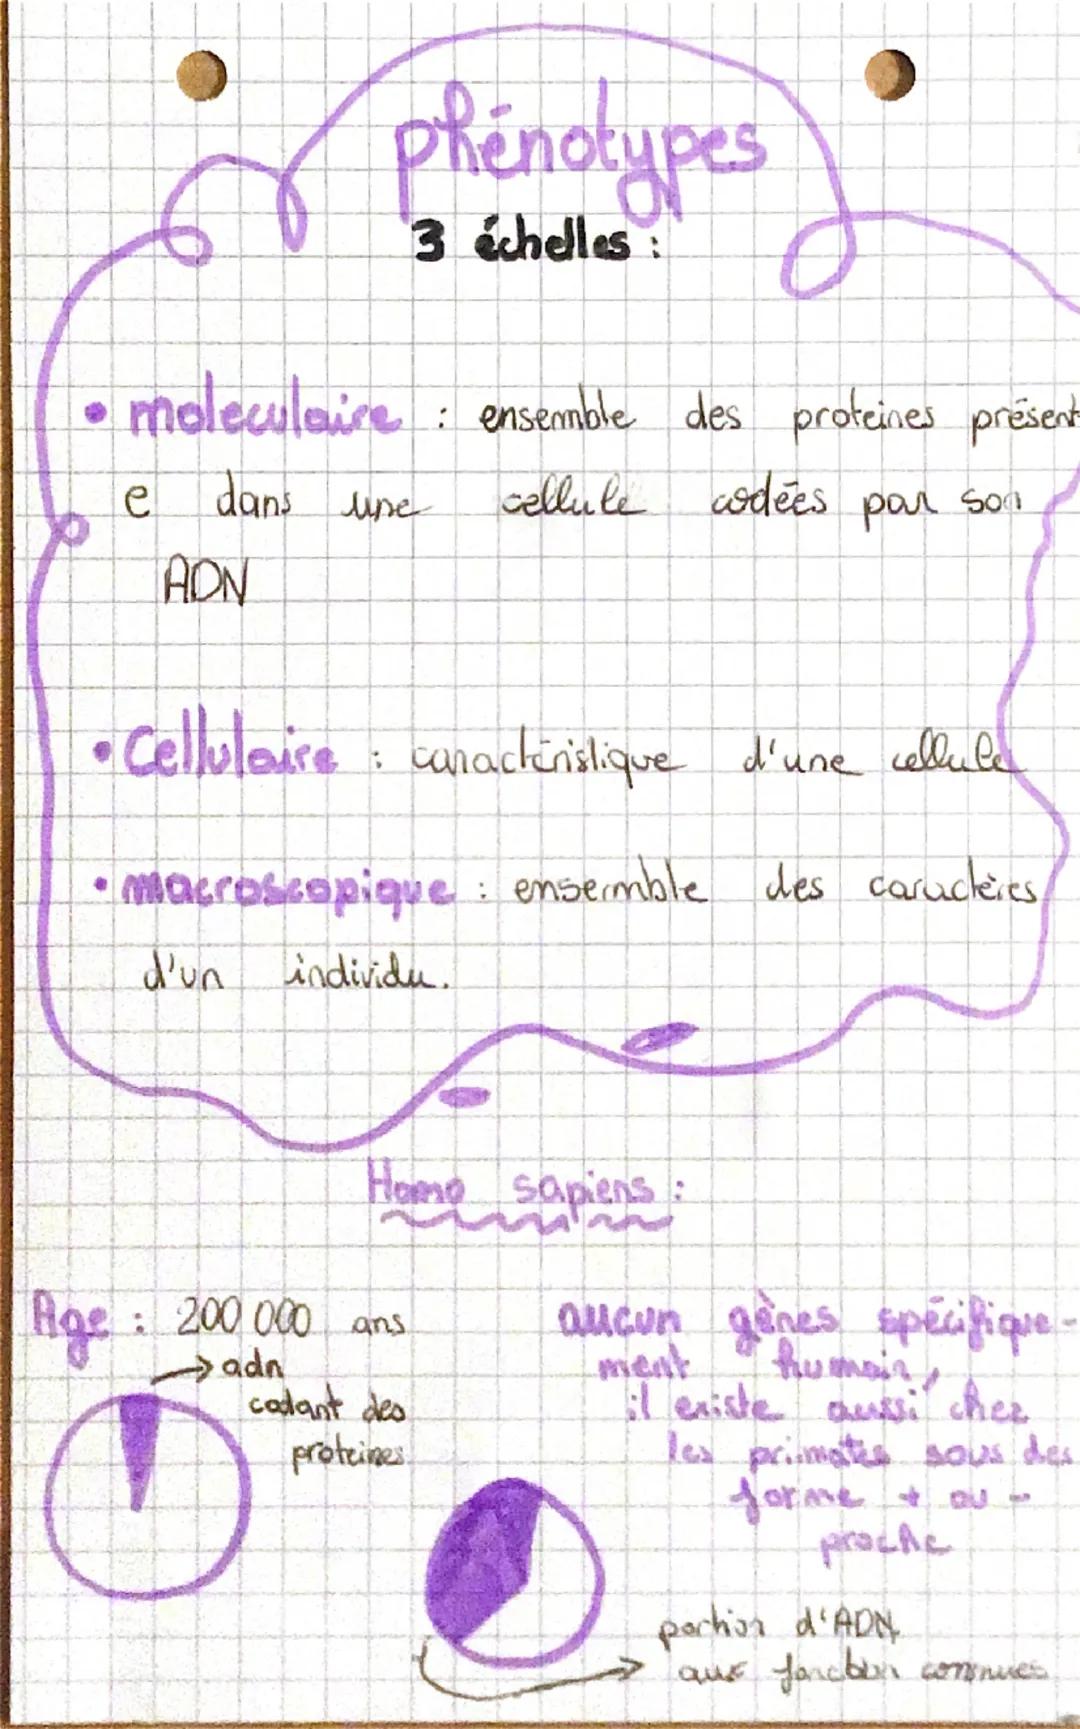 phénotypes
3 échelles :
• moleculaire : ensemble des proteines présent
e dans une cellule codées par son
ADN
• Cellulaire : caractéristique d'une cellule
• macroscopique : ensemble des caractères
d'un individu.
Homo sapiens :
Age : 200 000 ans
→ adn
codant des
proteines
aucun gènes spécifique-
ment humain,
il existe aussi chez
les primates sous des
forme + ou -
proche
portion d'ADN
aux fonction connues